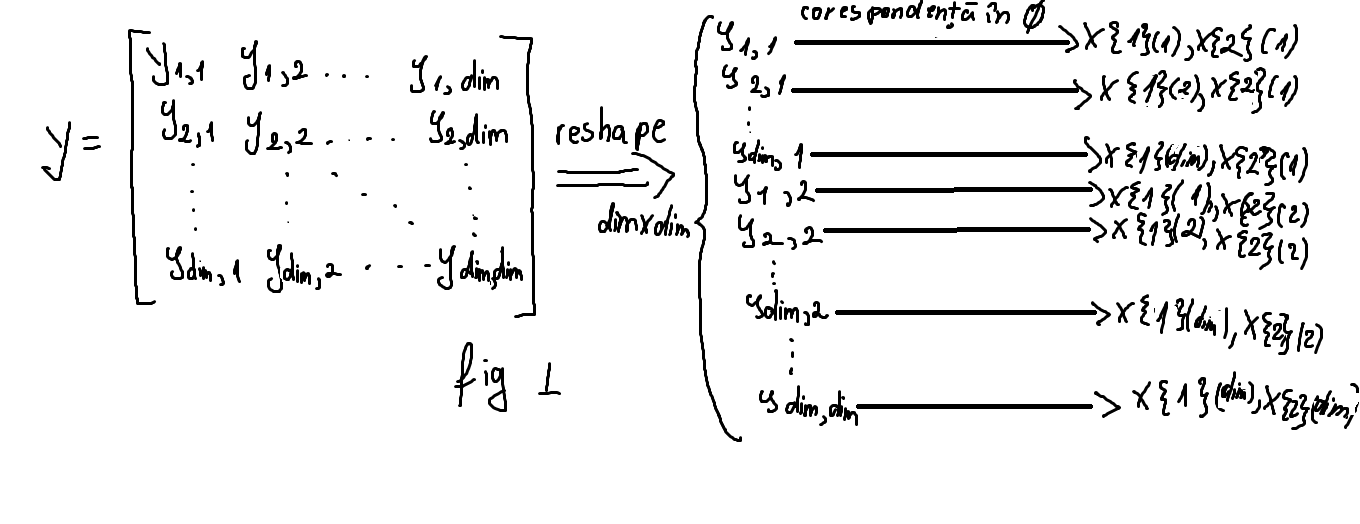 y = [ y1,1 y1,2 ... y1,dim
y2,1 y2,2 .... y2,dim
ydim,1 ydim,2 .... ydim,dim ]
reshape
dimxdim
corespondență în Ø
y1,1 → X{1}(1), X{2}(1)
y2,1 → X{1}(2), X{2}(1)
ydim,1 → X{1}(dim), X{2}(1)
y1,2 → X{1}(1), X{2}(2)
y2,2 → X{1}(2), X{2}(2)
ydim,2 → X{1}(dim), X{2}(2)
ydim,dim → X{1}(dim), X{2}(dim)
fig 1